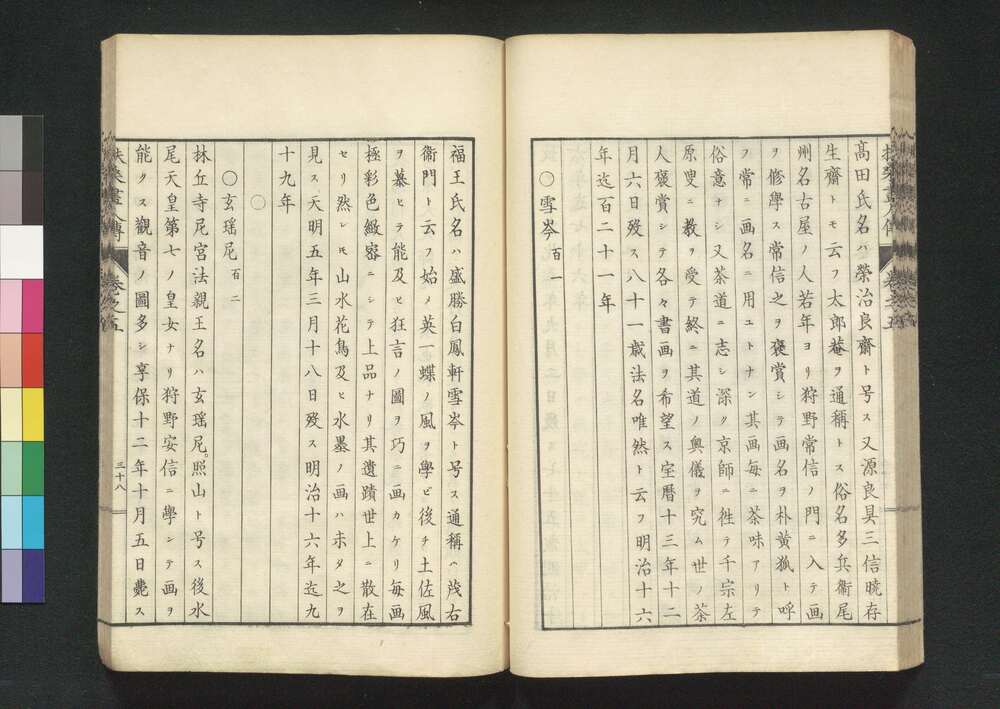 髙田氏名ハ榮治良齋ト号ス又源良具三信暁存
生齋トモ云フ太郎菴ヲ通稱トス俗名多兵衞尾
州名古屋ノ人若年ヨリ狩野常信ノ門ニ入テ画
ヲ修學ス常信之ヲ褒賞シテ画名ヲ朴黄狐ト呼
フ常ニ画名ニ用ユトナン其画毎ニ茶味アリテ
俗意ナシ又茶道ニ志シ深ク京師ニ徃テ千宗左
原叟ニ教ヲ受テ終ニ其道ノ奥儀ヲ究ム世ノ茶
人褒賞シテ各々書画ヲ希望ス宝暦十三年十二
月六日歿ス八十一歳法名唯然ト云フ明治十六
年迄百二十一年
〇雪岑 百一
福王氏名ハ盛勝白鳳軒雪岑ト号ス通稱ハ茂右
衞門ト云フ始メ英一蝶ノ風ヲ學ヒ後チ土佐風
ヲ慕ヒテ能及ヒ狂言ノ圖ヲ巧ニ画カケリ毎画
極彩色緻密ニシテ上品ナリ其遺蹟世上ニ散在
セリ然レモ山水花鳥及ヒ水墨ノ画ハ未タ之ヲ
見ス天明五年三月十八日歿ス明治十六年迄九
十九年
〇
〇玄瑶尼 百二
林丘寺尼宮法親王名ハ玄瑶尼。照山ト号ス後水
尾天皇第七ノ皇女ナリ狩野安信ニ學ンテ画ヲ
能クス觀音ノ圖多シ享保十二年十月五日薨ス
扶桑畫人傳 巻之五
三十八